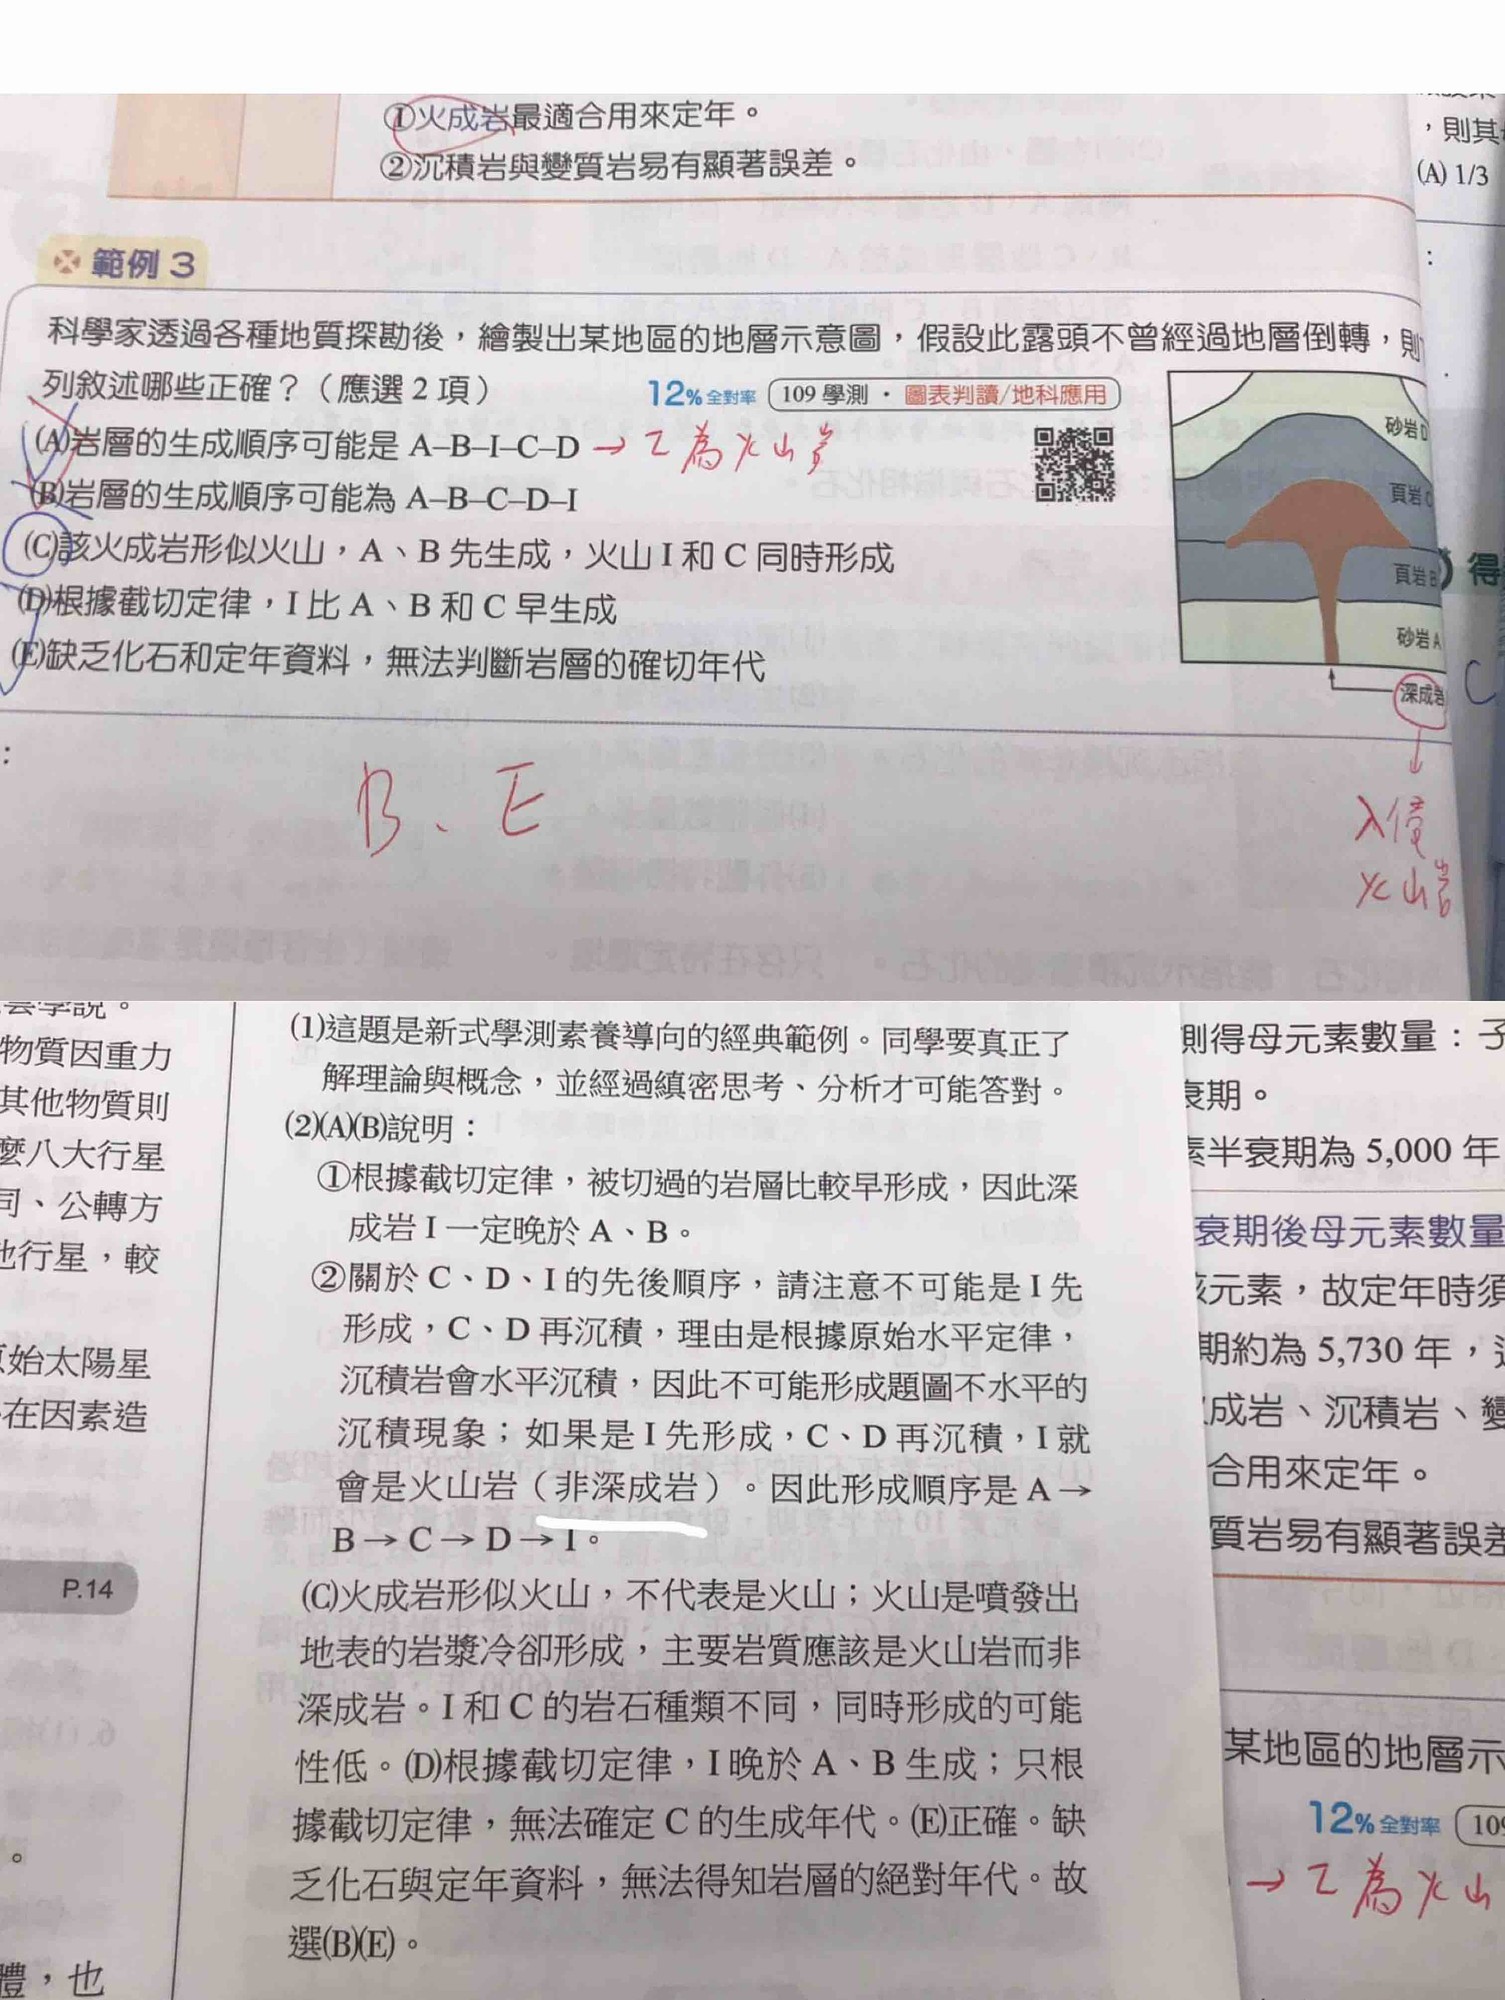 ①火成岩最適合用來定年。
②沉積岩與變質岩易有顯著誤差。
,則其
(A) 1/3
:
範例 3
科學家透過各種地質探勘後，繪製出某地區的地層示意圖，假設此露頭不曾經過地層倒轉，則
列敘述哪些正確？（應選 2 項）
12%全對率 109 學測・圖表判讀/地科應用
(A)岩層的生成順序可能是 A–B–I–C–D → I 為火山岩
(B)岩層的生成順序可能為 A–B–C–D–I
(C)該火成岩形似火山，A、B 先生成，火山 I 和 C 同時形成
(D)根據截切定律，I 比 A、B 和 C 早生成
(E)缺乏化石和定年資料，無法判斷岩層的確切年代
砂岩D
頁岩C
頁岩B
砂岩A
深成岩
得
C
:
B、E
入侵
火山岩
雲學說。
物質因重力
其他物質則
麼八大行星
同、公轉方
他行星，較
原始太陽星
在因素造
P.14
。
體，也
(1)這題是新式學測素養導向的經典範例。同學要真正了
解理論與概念，並經過縝密思考、分析才可能答對。
(2)(A)(B)說明：
①根據截切定律，被切過的岩層比較早形成，因此深
成岩 I 一定晚於 A、B。
②關於 C、D、I 的先後順序，請注意不可能是 I 先
形成，C、D 再沉積，理由是根據原始水平定律，
沉積岩會水平沉積，因此不可能形成題圖不水平的
沉積現象；如果是 I 先形成，C、D 再沉積，I 就
會是火山岩（非深成岩）。因此形成順序是 A→
B→C→D→I。
(C)火成岩形似火山，不代表是火山；火山是噴發出
地表的岩漿冷卻形成，主要岩質應該是火山岩而非
深成岩。I 和 C 的岩石種類不同，同時形成的可能
性低。(D)根據截切定律，I 晚於 A、B 生成；只根
據截切定律，無法確定 C 的生成年代。(E)正確。缺
乏化石與定年資料，無法得知岩層的絕對年代。故
選(B)(E)。
測得母元素數量：子
衰期。
素半衰期為 5,000 年
衰期後母元素數量
該元素，故定年時須
期約為 5,730 年，
成岩、沉積岩、變
合用來定年。
質岩易有顯著誤差
某地區的地層示
12%全對率 109
→ I 為火山